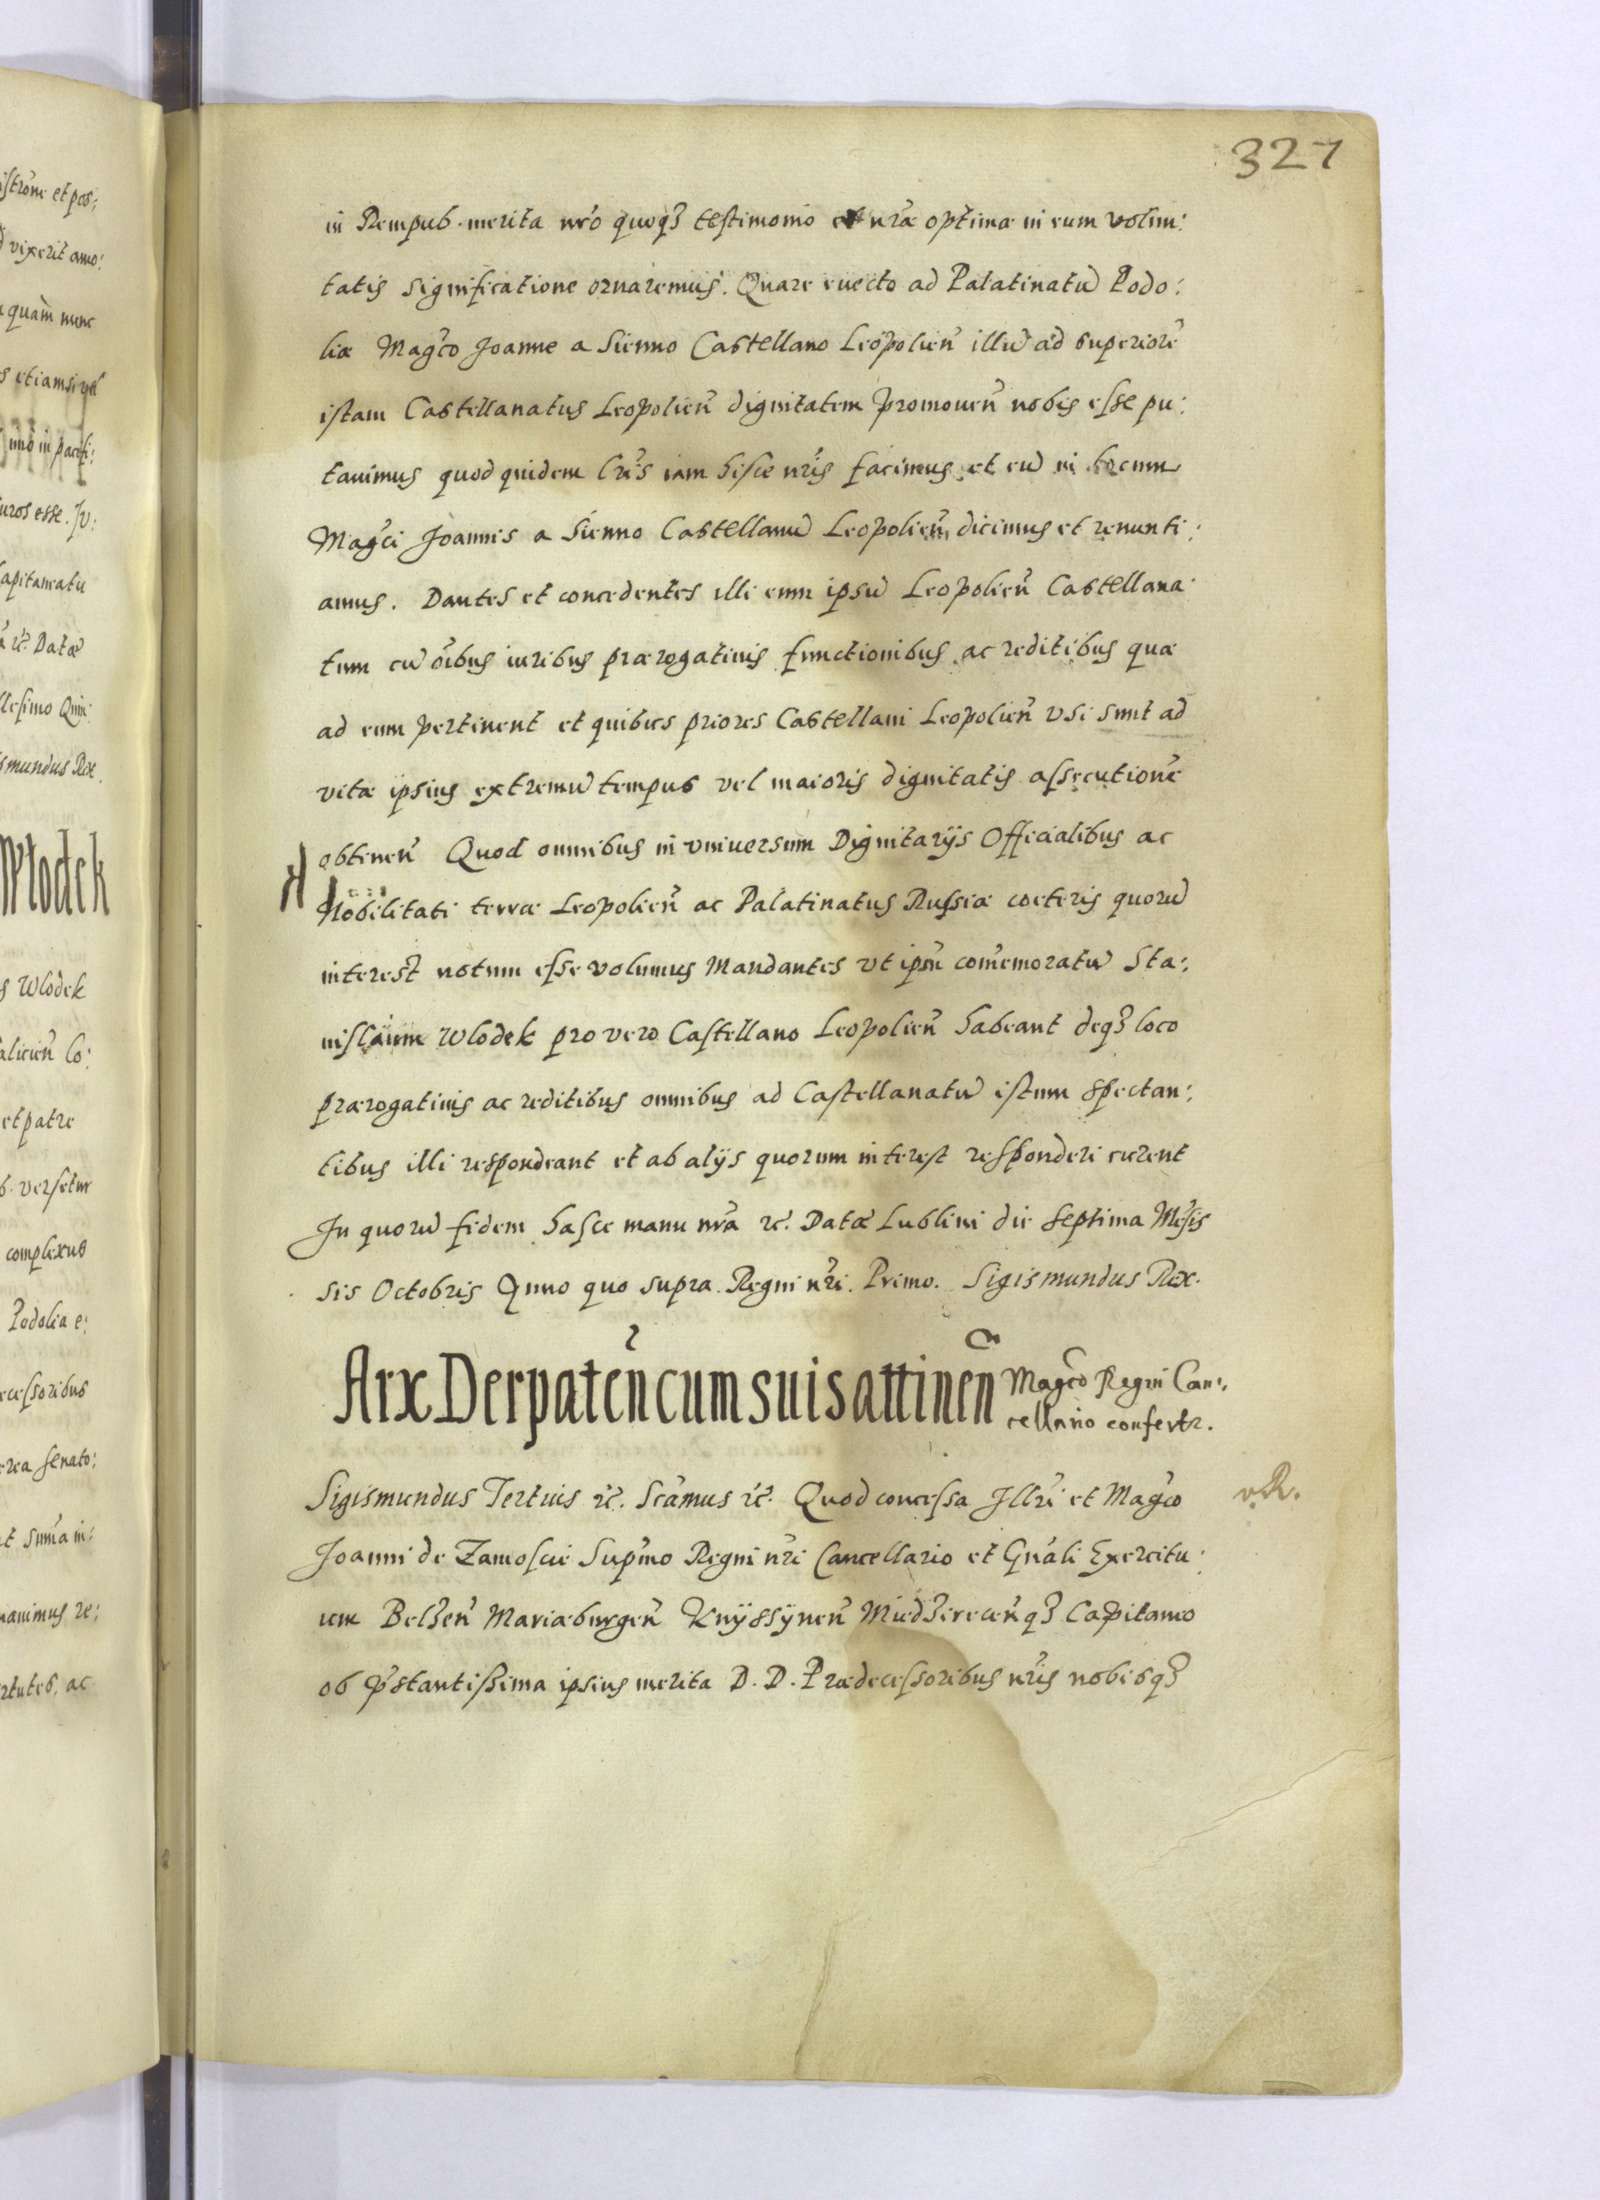 327
in Rempub. merita nrō quoqȝ testimonio et nrāe optimæ in eum volun:
tatis significatione ornaremus. Quare euecto ad Palatinatū Podo:
liæ Magco Joanne a Sienno Castellano Leopolien̄ illū ad superiorē
istam Castellanatus Leopolien̄ dignitatem promouen̄ nobis esse pu:
tauimus quod quidem lrīs iam hisce nrīs facimus et eū in locum
Magci Joannis a Sienno Castellanū Leopolien̄ dicimus et renunti:
amus. Dantes et concedentes illi eum ipsū Leopolien̄ Castellana:
tum cū oībus iuribus prærogatiuis functionibus ac reditibus quæ
ad eum pertinent et quibus priores Castellani Leopolien̄ vsi sunt ad
vitæ ipsius extremū tempus vel maioris dignitatis assecutionē
obtinen̄ Quod omnibus in vniuersum Dignitarijs Officialibus ac
Nobilitati terræ Leopolien̄ ac Palatinatus Russiæ cœteris quorū
interest notum esse volumus Mandantes vt ipsū com̄emoratū Sta:
nislaum Wlodek pro vero Castellano Leopolien̄ habeant deqȝ loco
prærogatiuis ac reditibus omnibus ad Castellanatū istum spectan:
tibus illi respondeant et ab alijs quorum interest responderi curent
In quorū fidem hasce manu nrā ec̄. Datæ Lublini die septima Mēsis
sis Octobris Anno quo supra. Regni nrī. Primo. Sigismundus Rex.
Arx Derpaten̄ cum suis attinen̄ Magco Regni Can:
cellario confertr.
Sigismundus Tertius ec̄. Scāmus ec̄. Quod concessa Illrī et Magco v. R.
Joanni de Zamoscie Supmo Regni nrī Cancellario et Gnāli Exercitu:
um Belzen̄ Mariæburgen̄ Knÿssÿnen̄ Miedzirecen̄qȝ Capitaneo
ob pstantissima ipsius merita D. D. Prædecessoribus nrīs nobisqȝ